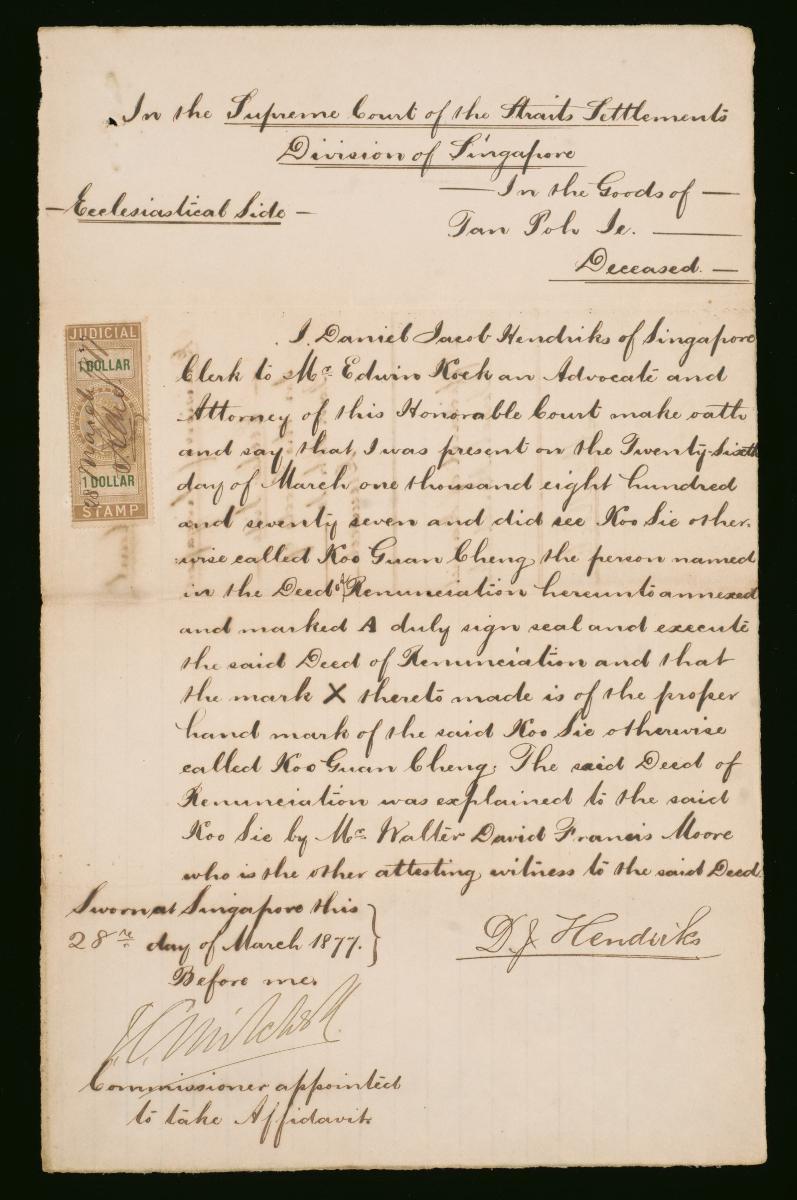 In the Supreme Court of the Straits Settlements
Division of Singapore
— In the Goods of —
— Ecclesiastical Side —
Tan Poh Ie. —
Deceased. —
JUDICIAL
1 DOLLAR
28 March
1 DOLLAR
STAMP
I, Daniel Jacob Hendriks of Singapore
Clerk to Mr. Edwin Koek an Advocate and
Attorney of this Honorable Court make oath
and say that I was present on the Twenty-Sixth
day of March one thousand eight hundred
and seventy seven and did see Koo Sie other-
wise called Koo Guan Cheng the person named
in the Deed of Renunciation hereunto annexed
and marked A duly sign seal and execute
the said Deed of Renunciation and that
the mark X thereto made is of the proper
hand mark of the said Koo Sie otherwise
called Koo Guan Cheng. The said Deed of
Renunciation was explained to the said
Koo Sie by Mr. Walter David Francis Moore
who is the other attesting witness to the said Deed.
Sworn at Singapore this
28th day of March 1877. }
D J Hendriks
Before me.
Commissioner appointed
to take Affidavits